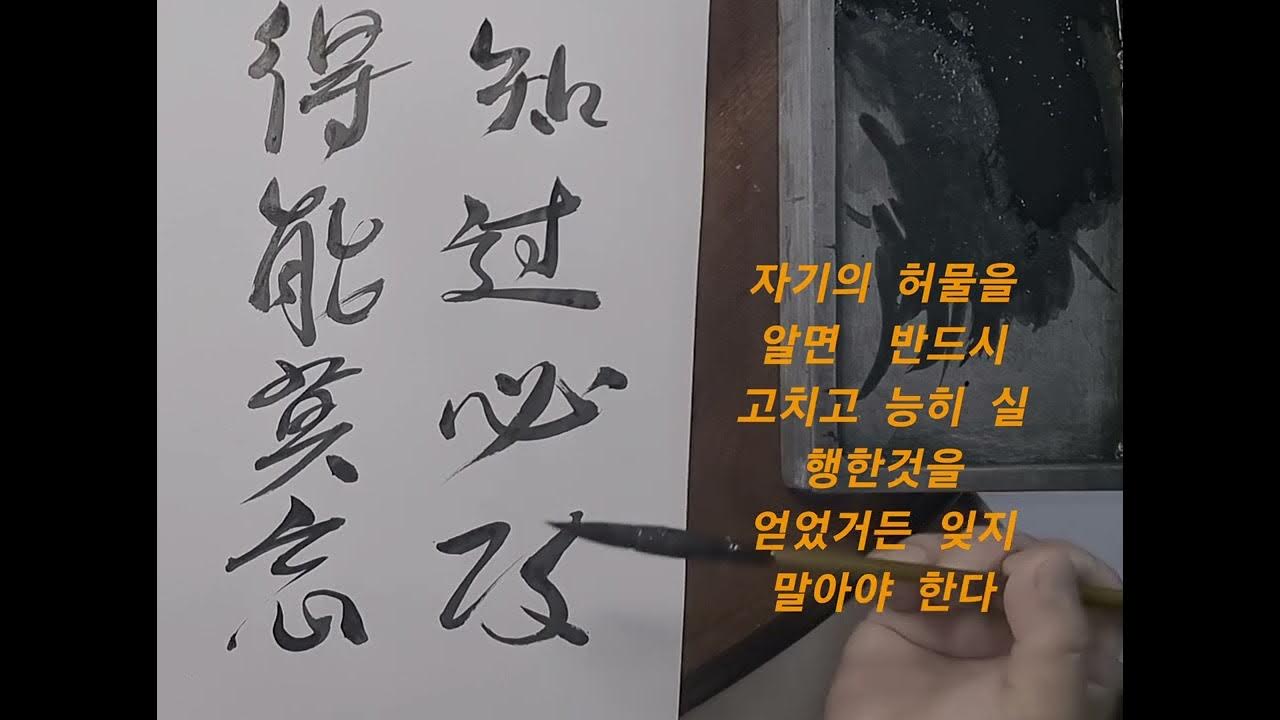 知過必改
得能莫忘
자기의 허물을
알면 반드시
고치고 능히 실
행한것을
얻었거든 잊지
말아야 한다